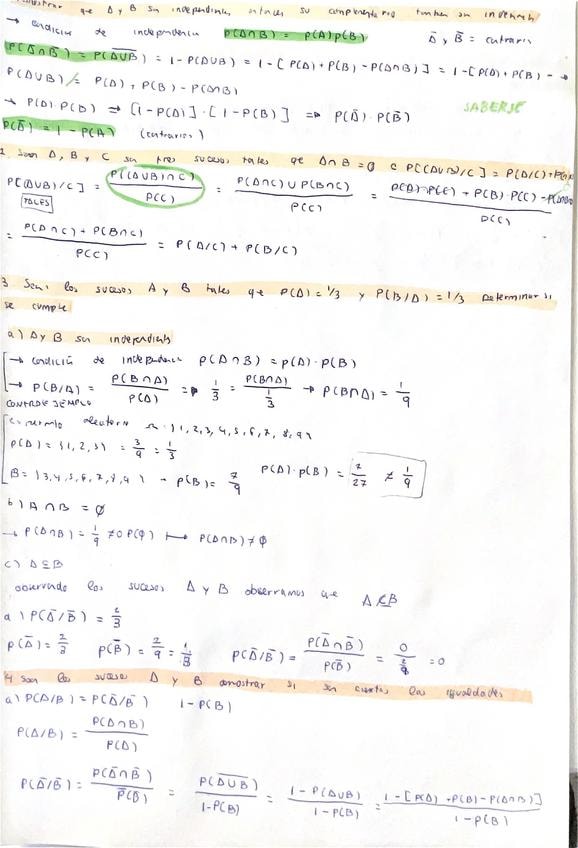 que A y B son independientes, entonces su complementario también son independ
→ condición de independencia P(A∩B) = P(A)P(B) Ā y B̄ = contrario
P(Ā∩B̄) = P(A∪B)‾ = 1-P(A∪B) = 1-[P(A)+P(B)-P(A∩B)] = 1-[P(A)+P(B)- →
P(A∪B) = P(A)+P(B)-P(A∩B)
→ P(A)·P(B) ⇒ [1-P(A)]·[1-P(B)] ⇒ P(Ā)·P(B̄) SABERSE
P(Ā) = 1-P(A) (contrarios)
2. Sean A, B y C son tres sucesos tales que A∩B = ∅ P[(A∪B)/C] = P(A/C)+P(B/C)
P[(A∪B)/C] = P((A∪B)∩C)/P(C) = P(A∩C)∪P(B∩C)/P(C) = P(A)·P(C)+P(B)·P(C)-P(A∩B)/P(C)
TALES
= P(A∩C)+P(B∩C)/P(C) = P(A/C)+P(B/C)
3. Sean los sucesos A y B tales que P(A)=1/3 y P(B/A)=1/3 Determinar si
se cumple
a) A y B son independients
→ condición de independencia P(A∩B) = P(A)·P(B)
→ P(B/A) = P(B∩A)/P(A) ⇒ 1/3 = P(B∩A)/(1/3) → P(B∩A) = 1/9
CONTRAEJEMPLO
aleatorio Ω {1,2,3,4,5,6,7,8,9}
P(A) = {1,2,3} = 3/9 = 1/3
B = {3,4,5,6,7,8,9} → P(B) = 7/9 P(A)·P(B) = 7/27 ≠ 1/9
b) A∩B = ∅
→ P(A∩B) = 1/9 ≠ 0 P(∅) ↦ P(A∩B) ≠ ∅
c) A⊆B
observando los sucesos A y B observamos que A⊄B
a) P(Ā/B̄) = 2/3
P(Ā) = 2/3 P(B̄) = 2/9 = 1/3 P(Ā/B̄) = P(Ā∩B̄)/P(B̄) = 0/(2/9) = 0
4. Sean los sucesos A y B demostrar si son ciertas las igualdades
a) P(A/B) = P(Ā/B̄) 1-P(B)
P(A/B) = P(A∩B)/P(A)
P(Ā/B̄) = P(Ā∩B̄)/P(B̄) = P(A∪B)‾/1-P(B) = 1-P(A∪B)/1-P(B) = 1-[P(A)+P(B)-P(A∩B)]/1-P(B)